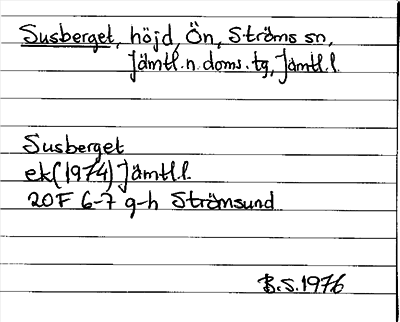 Susberget, höjd, Ön, Ströms sn,
Jämtl.n.doms.tg, Jämtl.l.
Susberget
ek(1974) Jämtl.l.
20F 6-7 g-h Strömsund
B.S.1976